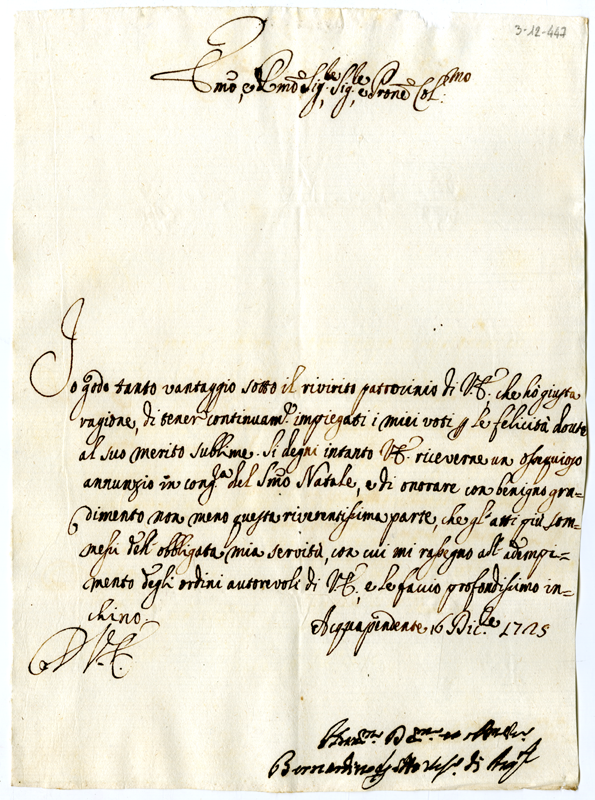 3-12-447
Emo, e Rmo Sig.re Sig.re e Prone Col.mo
Io godo tanto vantaggio sotto il riverito patrocinio di V.E. che hò giusta
ragione, di tener continuam.te impiegati i miei voti p le felicità doute
al suo merito sublime. Si degni intanto V.E. riceverne un ossequioso
annunzio in cong.ra del Smo Natale, e di onorare con benigno gra=
dimento non meno questa riverentissima parte, che gl'atti più som=
messi dell'obbligata mia servitù, con cui mi rassegno all'adempi=
mento degli ordini autorevoli di V.E., e le faccio profondissimo in=
chino.
Acquapendente 16 Dic.re 1725
D V.E.
Bernardino Vesc.o di Acq.te